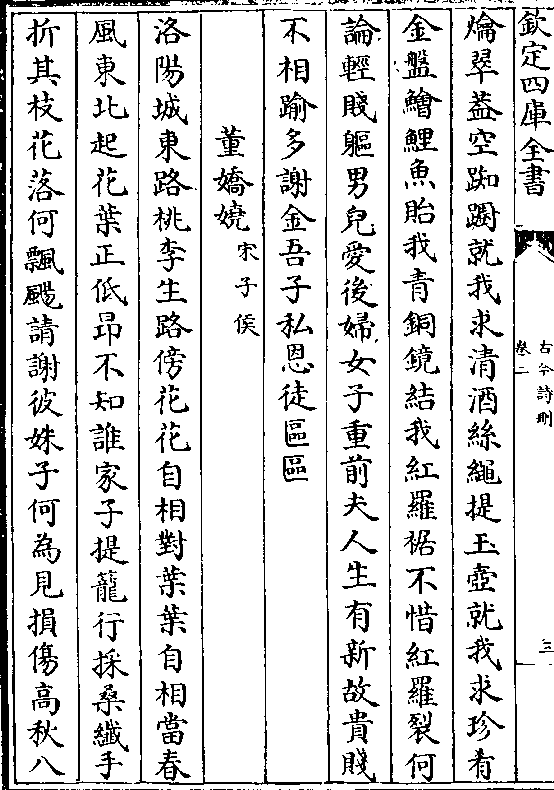 欽定四庫全書
古今詩刪
卷二
三
爚翠葢空踟蹰就我求清酒絲繩提玉壺就我求珍肴
金盤鱠鯉魚貽我青銅鏡結我紅羅裾不惜紅羅裂何
論輕賤軀男兒愛後婦女子重前夫人生有新故貴賤
不相踰多謝金吾子私恩徒區區
董嬌嬈
宋子侯
洛陽城東路桃李生路傍花花自相對葉葉自相當春
風東北起花葉正低昂不知誰家子提籠行採桑纎手
折其枝花落何飄颺請謝彼姝子何為見損傷高秋八